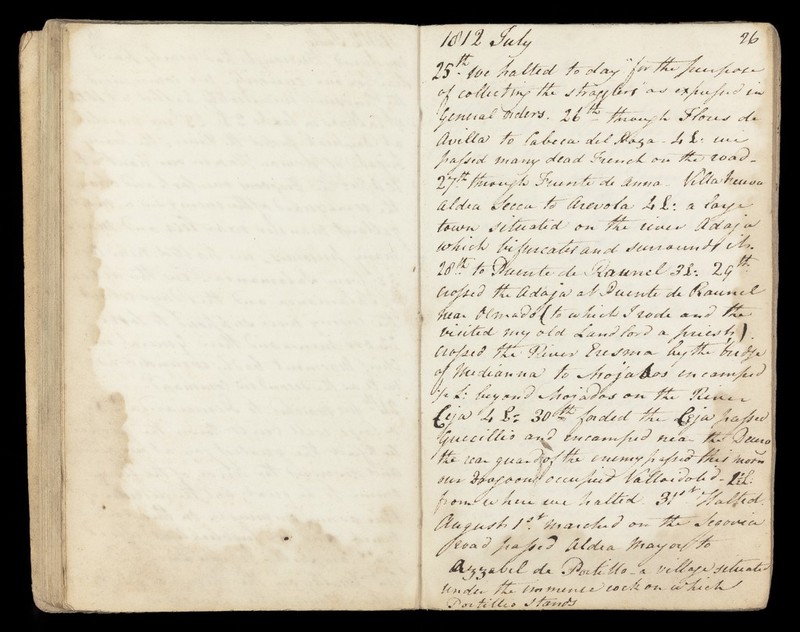 1812 July 26
25th. We halted to day "for the purpose
of collecting the stragglers" as expressed in
General Orders. 26th through Flores de
Avilla to Cabeca del Poza. 4 L: we
passed many dead French on the road -
27th through Fuente de Anna. Villa Nueva
Aldea Secca to Arevola 4 L: a large
town situated on the river Adaja
which bifurcates and surrounds it.
28th to Puente de Raunel 3 L: 29th
crossed the Adaja at Puente de Raunel
near Olmado (to which I rode and
visited my old Landlord a priest)
crossed the River Eresma by the bridge
of Medianna to Mojados encamped
L: beyond Mojados on the River
Ceja 4 L: 30th forded the Ceja passed
and encamped near the Deuro
the rear guard of the enemy passed this morn
our Dragoons occupied Valladolid - L:
from where we halted. 31st Halted.
August 1st. marched on the Segovia
road passed Aldea Mayor to
Azzabel de Portillo - a village situated
under the immence rock on which
Portillio stands